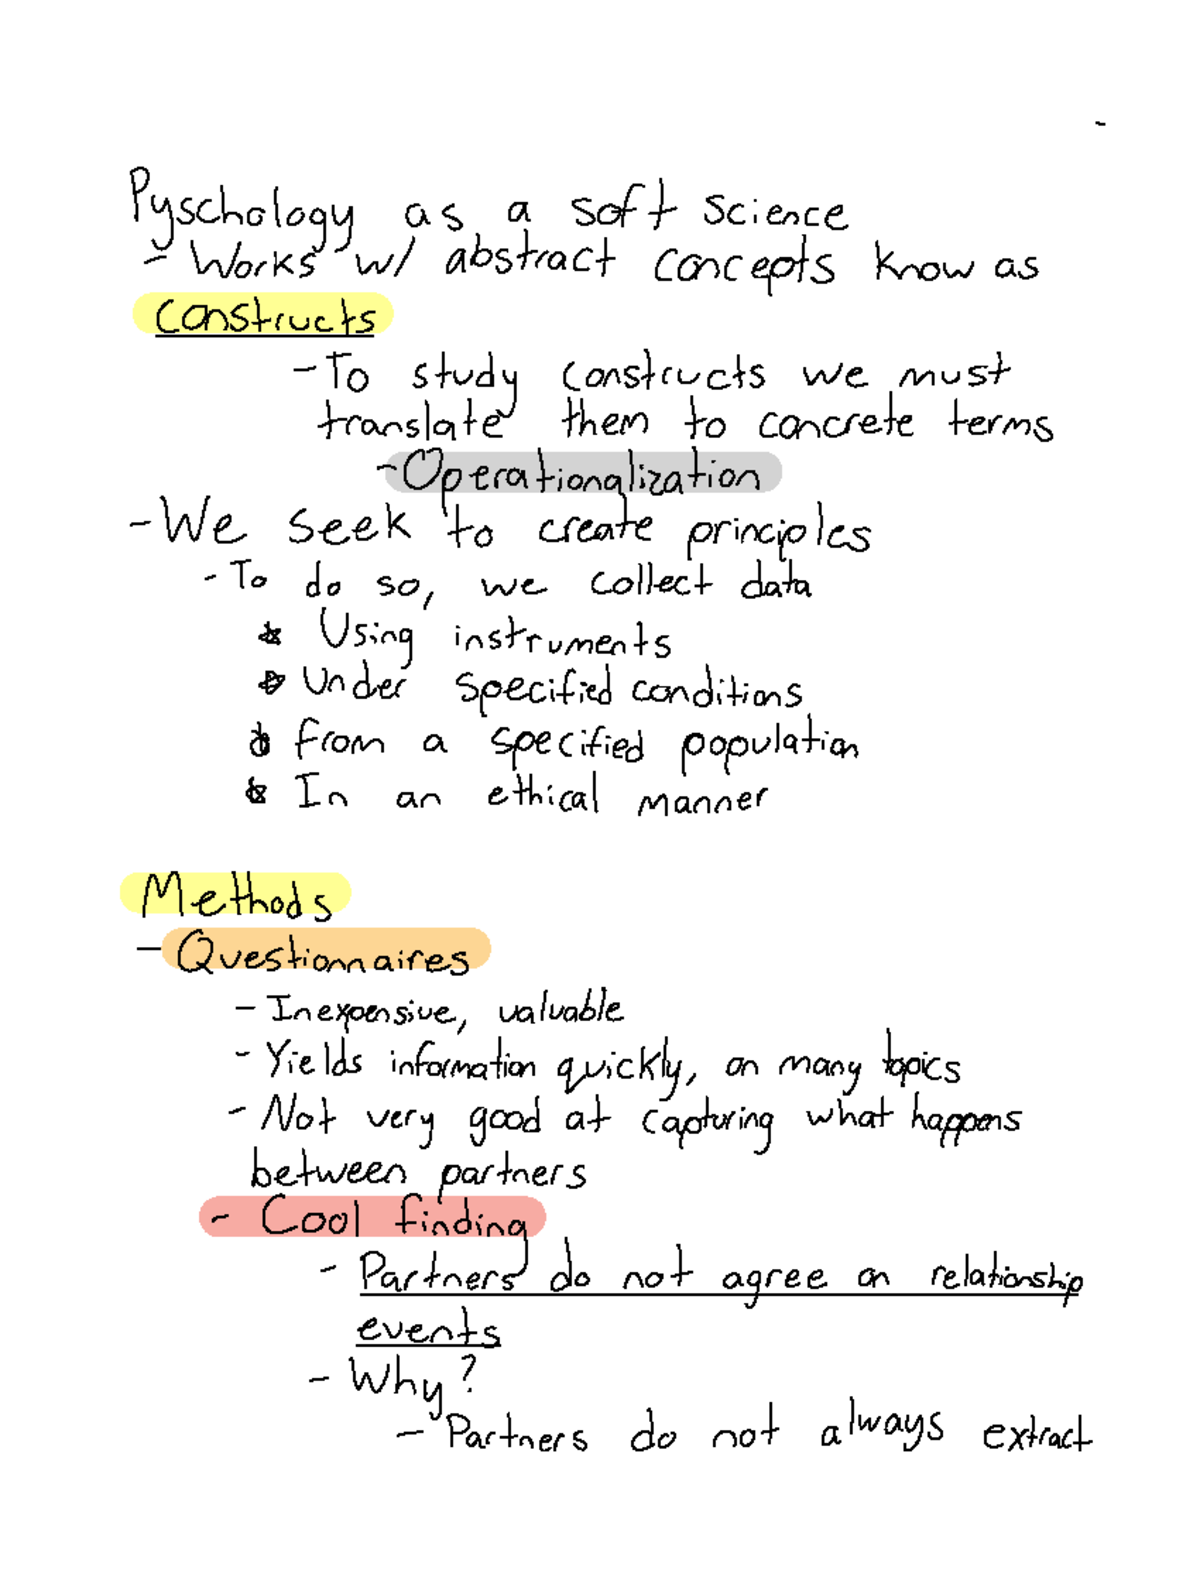 Pyschology as a soft science
- Works w/ abstract concepts know as
constructs
- To study constructs we must
translate them to concrete terms
- Operationalization
- We seek to create principles
- To do so, we collect data
* Using instruments
* Under specified conditions
* from a specified population
* In an ethical manner
Methods
- Questionnaires
- Inexpensive, valuable
- Yields information quickly, on many topics
- Not very good at capturing what happens
between partners
- Cool finding
- Partners do not agree on relationship
events
- Why?
- Partners do not always extract